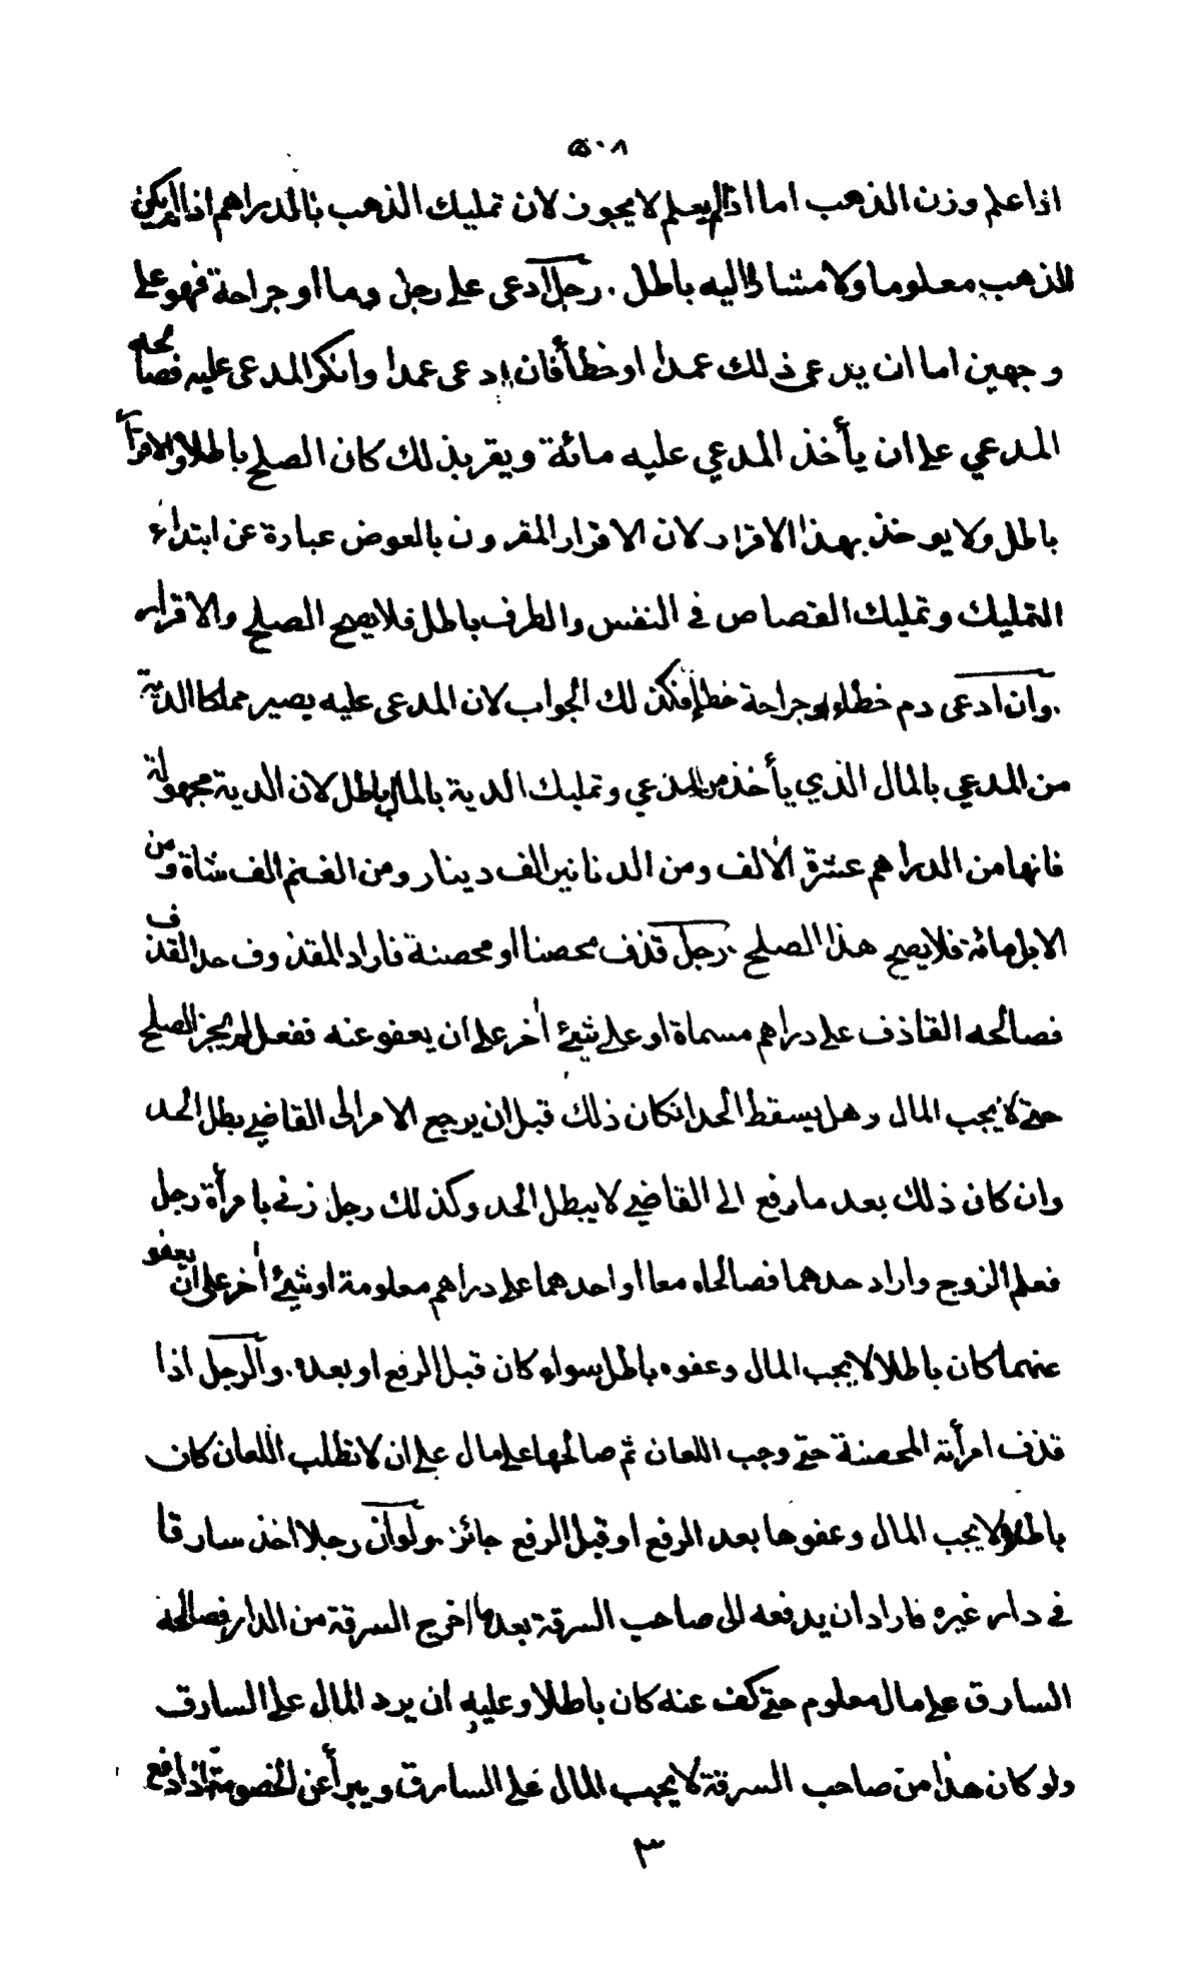 ٥٠٨
اذا علم وزن الذهب اما اذا لم يعلم لا يجوز لان تمليك الذهب بالدراهم اذا لم يكن
الذهب معلوما ولا مشارا اليه باطل . رجل ادعى على رجل دما او جراحة فهو على
وجهين اما ان يدعى ذلك عمدا او خطأ فان ادعى عمدا وانكر المدعى عليه فصالحه
المدعي على ان يأخذ المدعي عليه مائة ويقر بذلك كان الصلح باطلا والاقرار
باطل ولا يوخذ بهذا الاقرار لان الاقرار المقرون بالعوض عبارة عن ابتداء
التمليك وتمليك القصاص في النفس والطرف باطل فلا يصح الصلح والاقرار
. وان ادعى دم خطاء او جراحة خطأ فكذلك الجواب لان المدعى عليه يصير مملكا الدية
من المدعي بالمال الذي يأخذ من المدعي وتمليك الدية بالمال باطل لان الدية مجهولة
فانها من الدراهم عشرة آلاف ومن الدنانير الف دينار ومن الغنم الف شاة ومن
الابل مائة فلا يصح هذا الصلح . رجل قذف محصنا او محصنة فاراد المقذوف حد القذف
فصالحه القاذف على دراهم مسماة او على شئ اٰخر على ان يعفو عنه ففعل لم يجز الصلح
حتى لا يجب المال وهل يسقط الحد ان كان ذلك قبل ان يرجع الامر الى القاضي بطل الحد
وان كان ذلك بعد ما رفع الى القاضي لا يبطل الحد وكذلك رجل زنى بامرأة رجل
فعلم الزوج واراد حدهما فصالحاه معا او احدهما على دراهم معلومة او شئ اٰخر على ان يعفو
عنهما كان باطلا لا يجب المال وعفوه باطل سواء كان قبل الرفع او بعده . والرجل اذا
قذف امرأته المحصنة حتى وجب اللعان ثم صالحها على مال على ان لا تطلب اللعان كان
باطلا ولا يجب المال وعفوها بعد الرفع او قبل الرفع جائز . ولو ان رجلا اخذ سارقا
في دار غيره فاراد ان يدفعه الى صاحب السرقة بعد ما اخرج السرقة من الدار فصالحه
السارق على مال معلوم حتى كف عنه كان باطلا وعليه ان يرد المال على السارق
ولو كان هذا من صاحب السرقة لا يجب المال على السارق ويبرأ عن الخصومة اذا دفع
٣